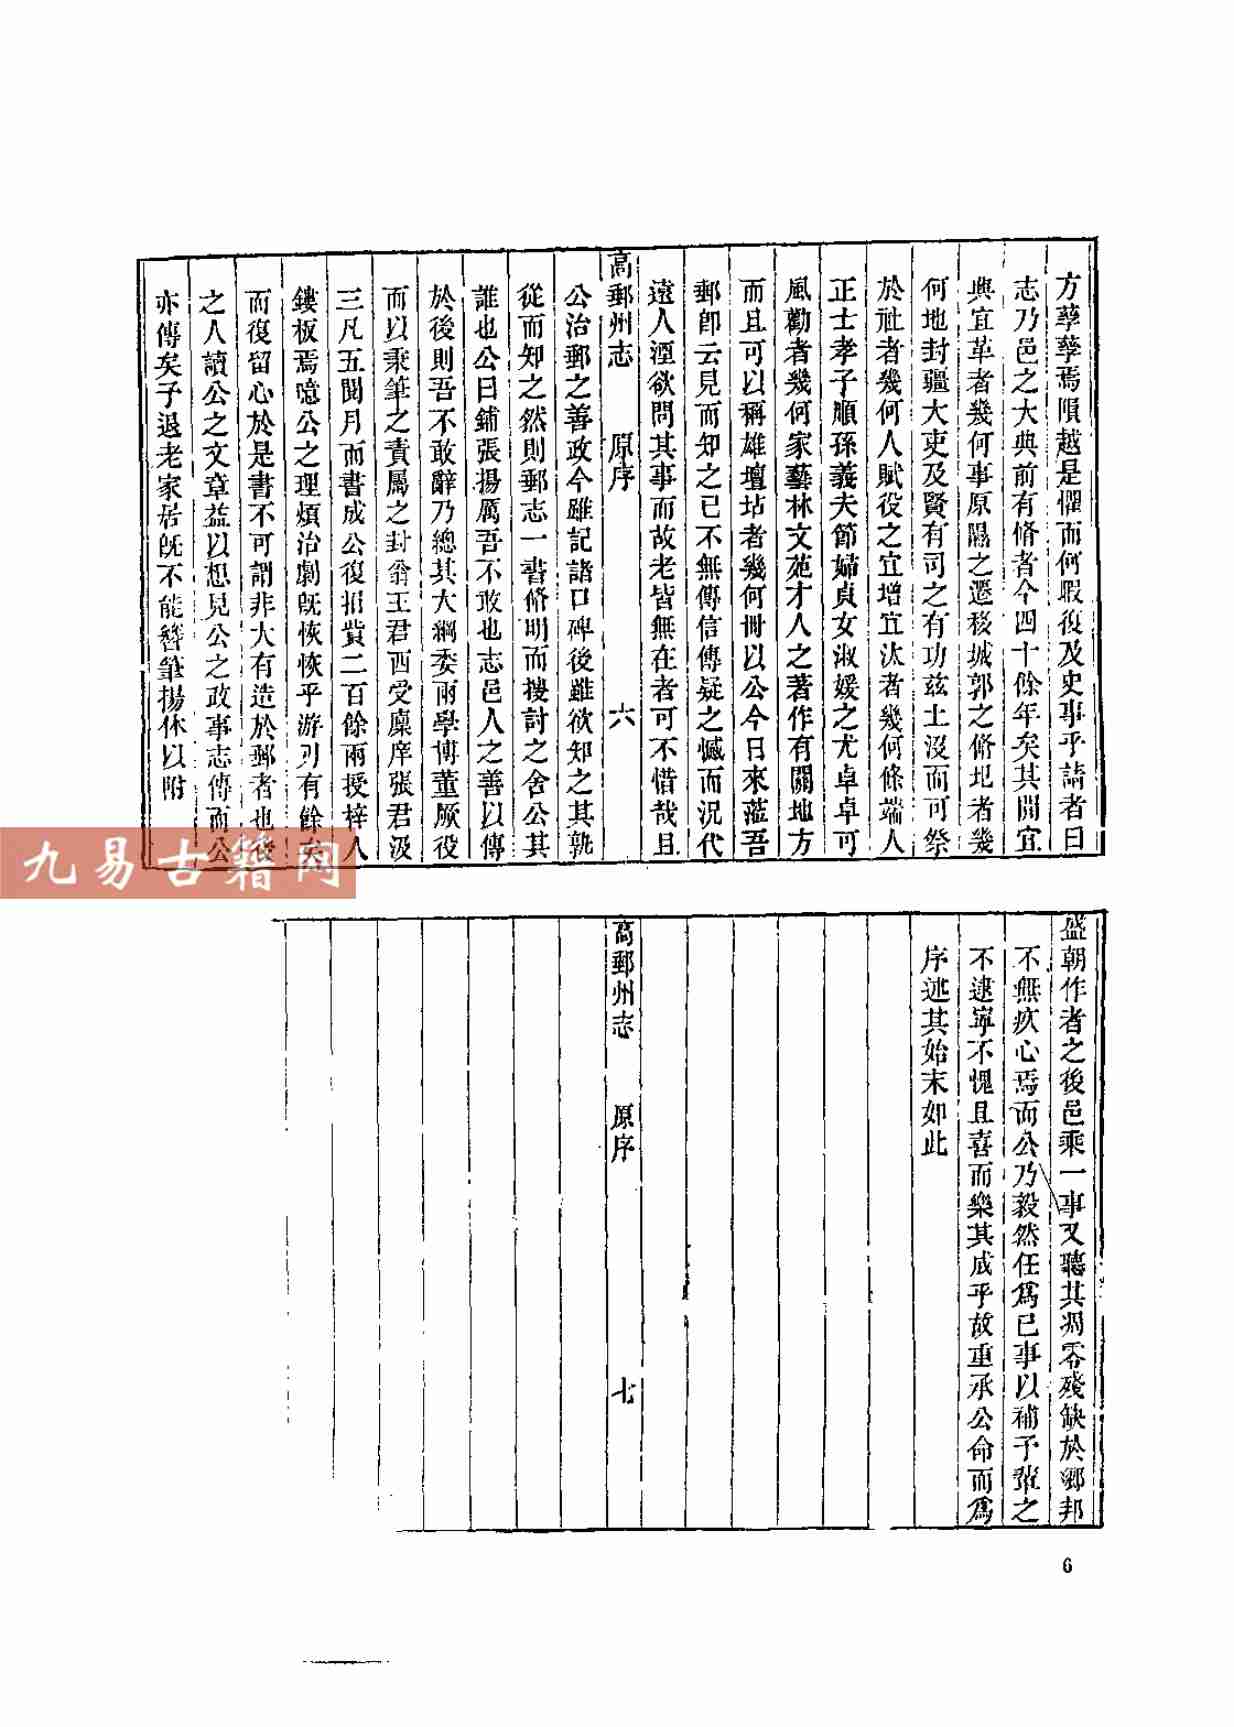 方孽孽焉隕越是懼而何暇復及史事乎請者曰
志乃邑之大典前有脩者今四十餘年矣其間宜
興宜革者幾何事原隰之遷移城郭之脩圮者幾
何地封疆大吏及賢有司之有功兹土沒而可祭
於社者幾何人賦役之宜增宜汰者幾何條端人
正士孝子順孫義夫節婦貞女淑媛之尤卓卓可
風勸者幾何家藝林文苑才人之著作有關地方
而且可以稱雄壇坫者幾何冊以公今日來蒞吾
郵卽云見而知之已不無傳信傳疑之憾而況代
遠人湮欲問其事而故老皆無在者可不惜哉且
高郵州志 原序 六
公治郵之善政今雖記諸口碑後雖欲知之其孰
從而知之然則郵志一書脩明而搜討之舍公其
誰也公曰鋪張揚厲吾不敢也志邑人之善以傳
於後則吾不敢辭乃總其大綱委兩學博董厥役
而以秉筆之責屬之封翁王君西受廩庠張君汲
三凡五閱月而書成公復捐貲二百餘兩授梓人
鏤板焉噫公之理煩治劇旣恢恢乎游刃有餘矣
而復留心於是書不可謂非大有造於郵者也後
之人讀公之文章益以想見公之政事志傳而公
亦傳矣予退老家居旣不能簪筆揚休以附
盛朝作者之後邑乘一事又聽其凋零殘缺於鄉邦
不無疚心焉而公乃毅然任爲已事以補予輩之
不逮寧不愧且喜而樂其成乎故重承公命而爲
序述其始末如此
高郵州志 原序 七
6
九易古籍网